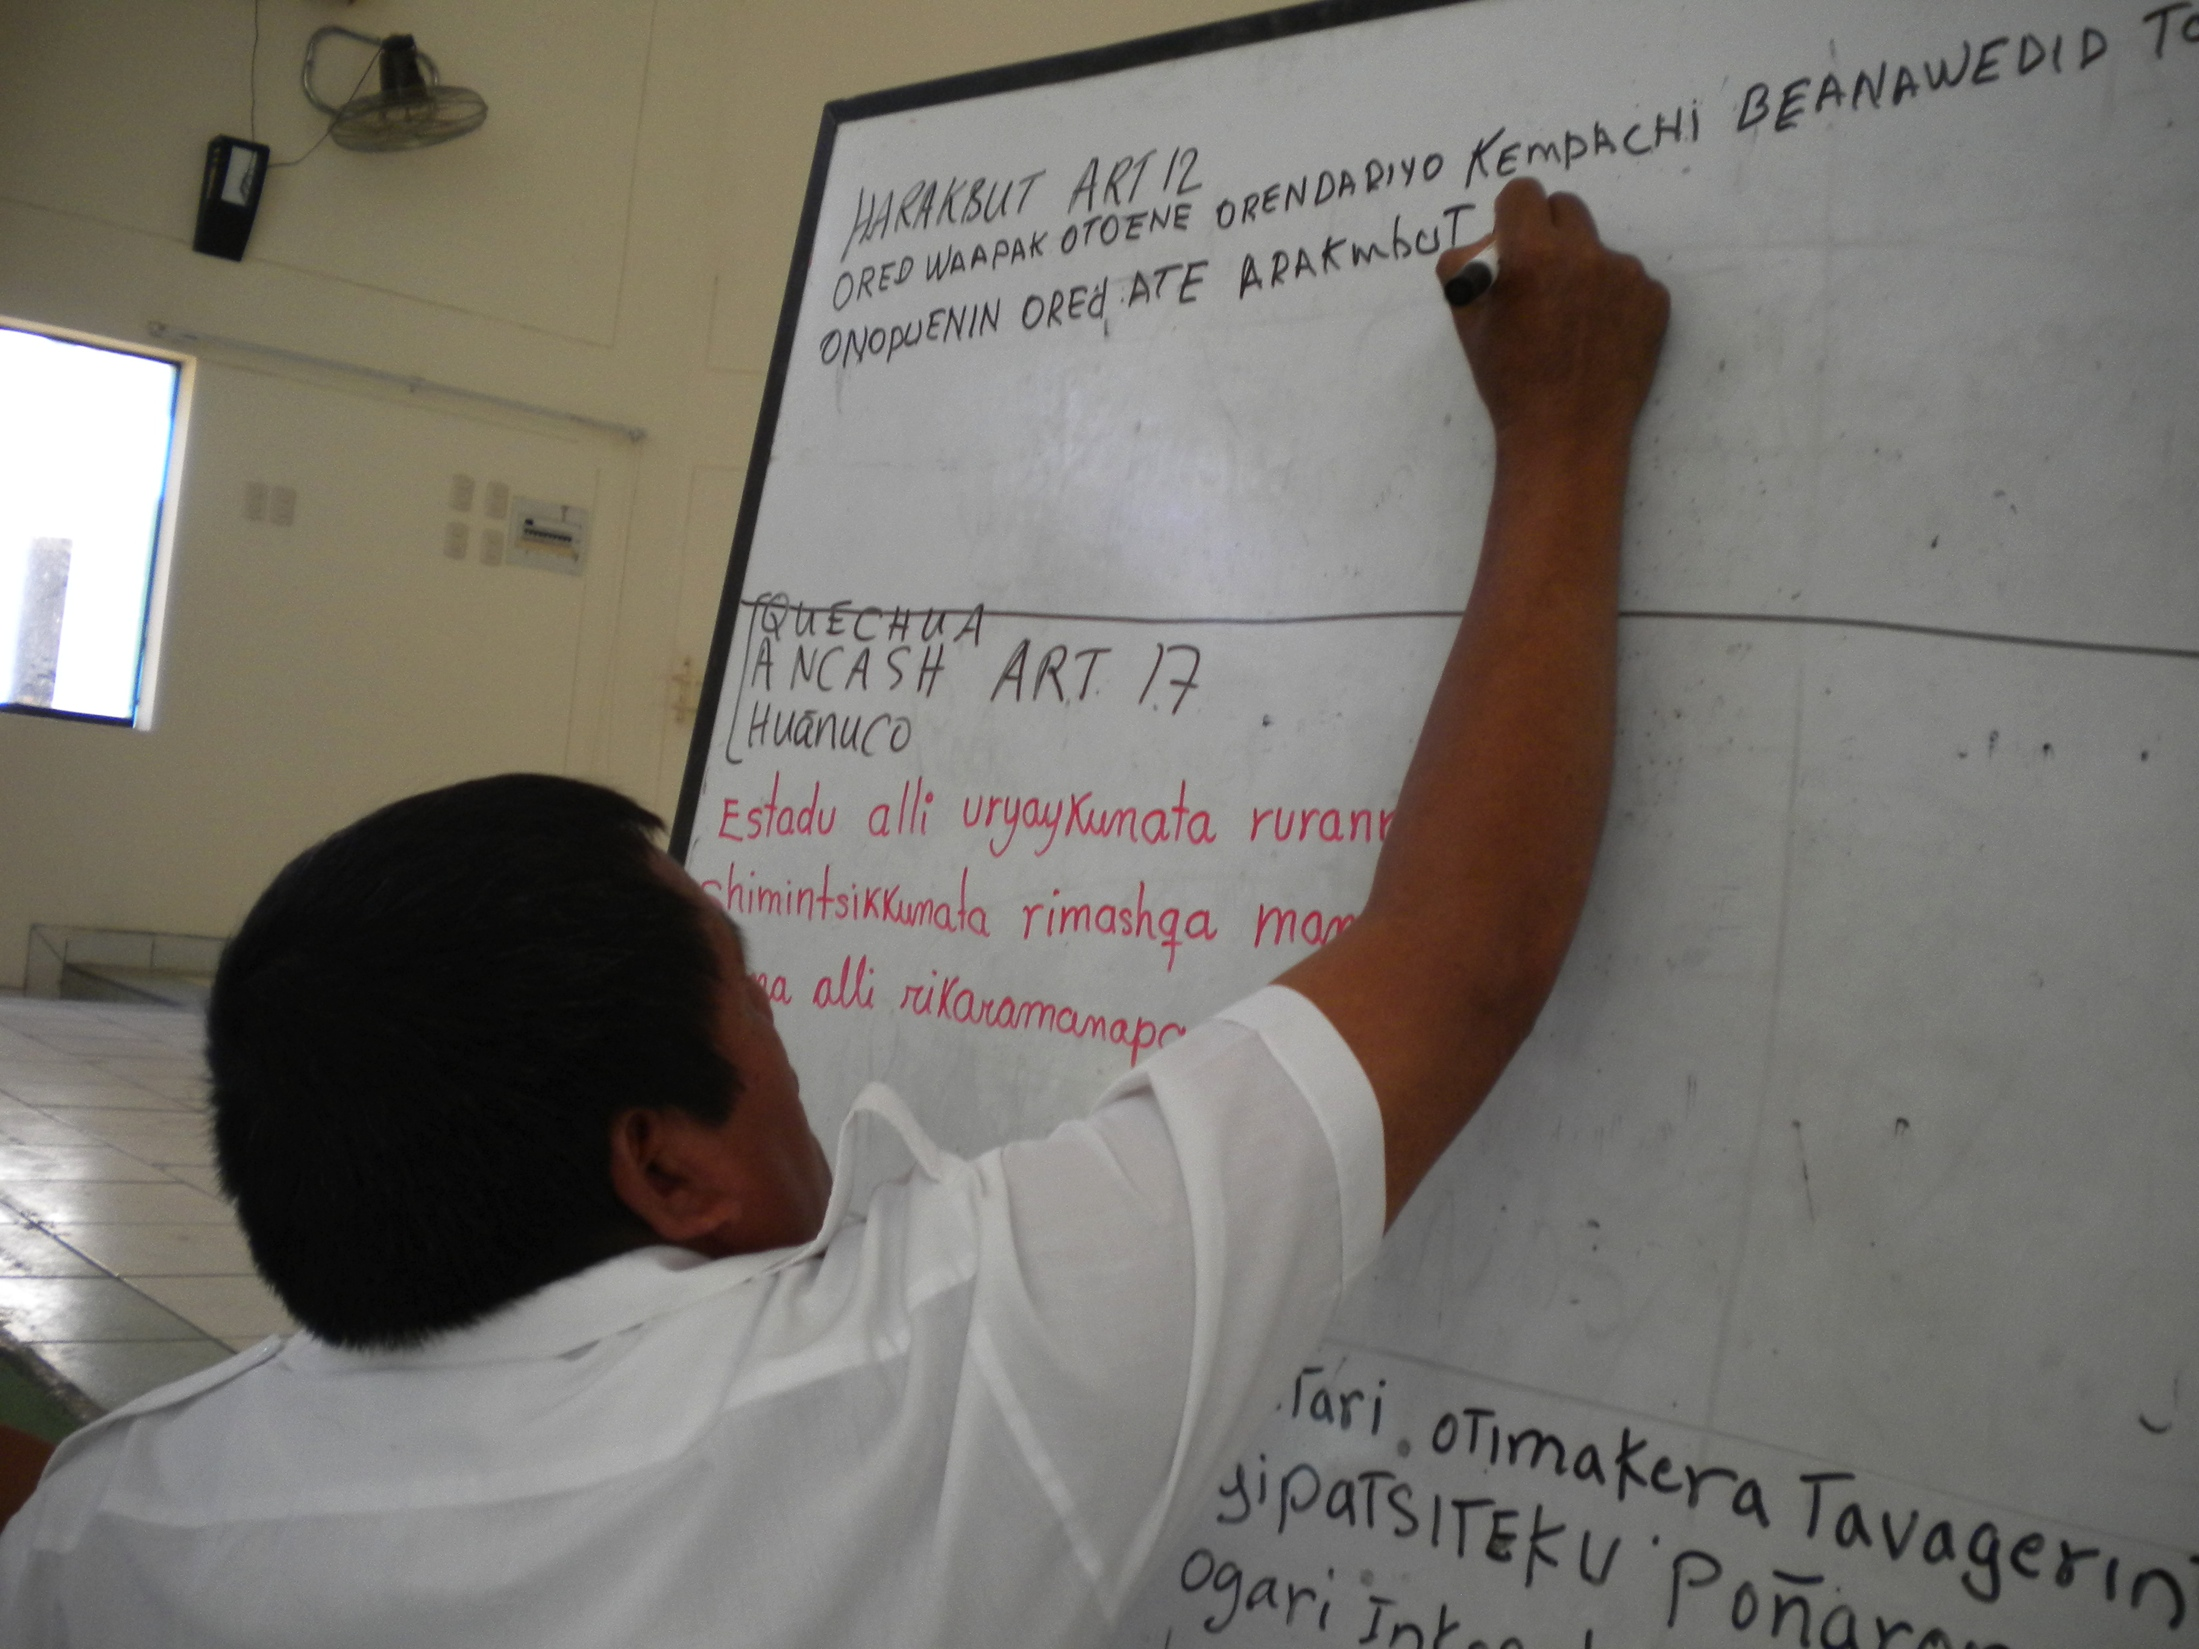 HARAKBUT ART 12
ORED WAAPAK OTOENE ORENDARIYO KEMPACHI BEANAWEDID
ONOPUENIN ORED ATE ARAKmbuT
QUECHUA
ANCASH ART. 17
HuánuCO
Estadu alli uryaykunata
shimintsikkunata rimashqa
alli rikaramanapa
Tari OTimakera
yipaTSITEKU
Ogari